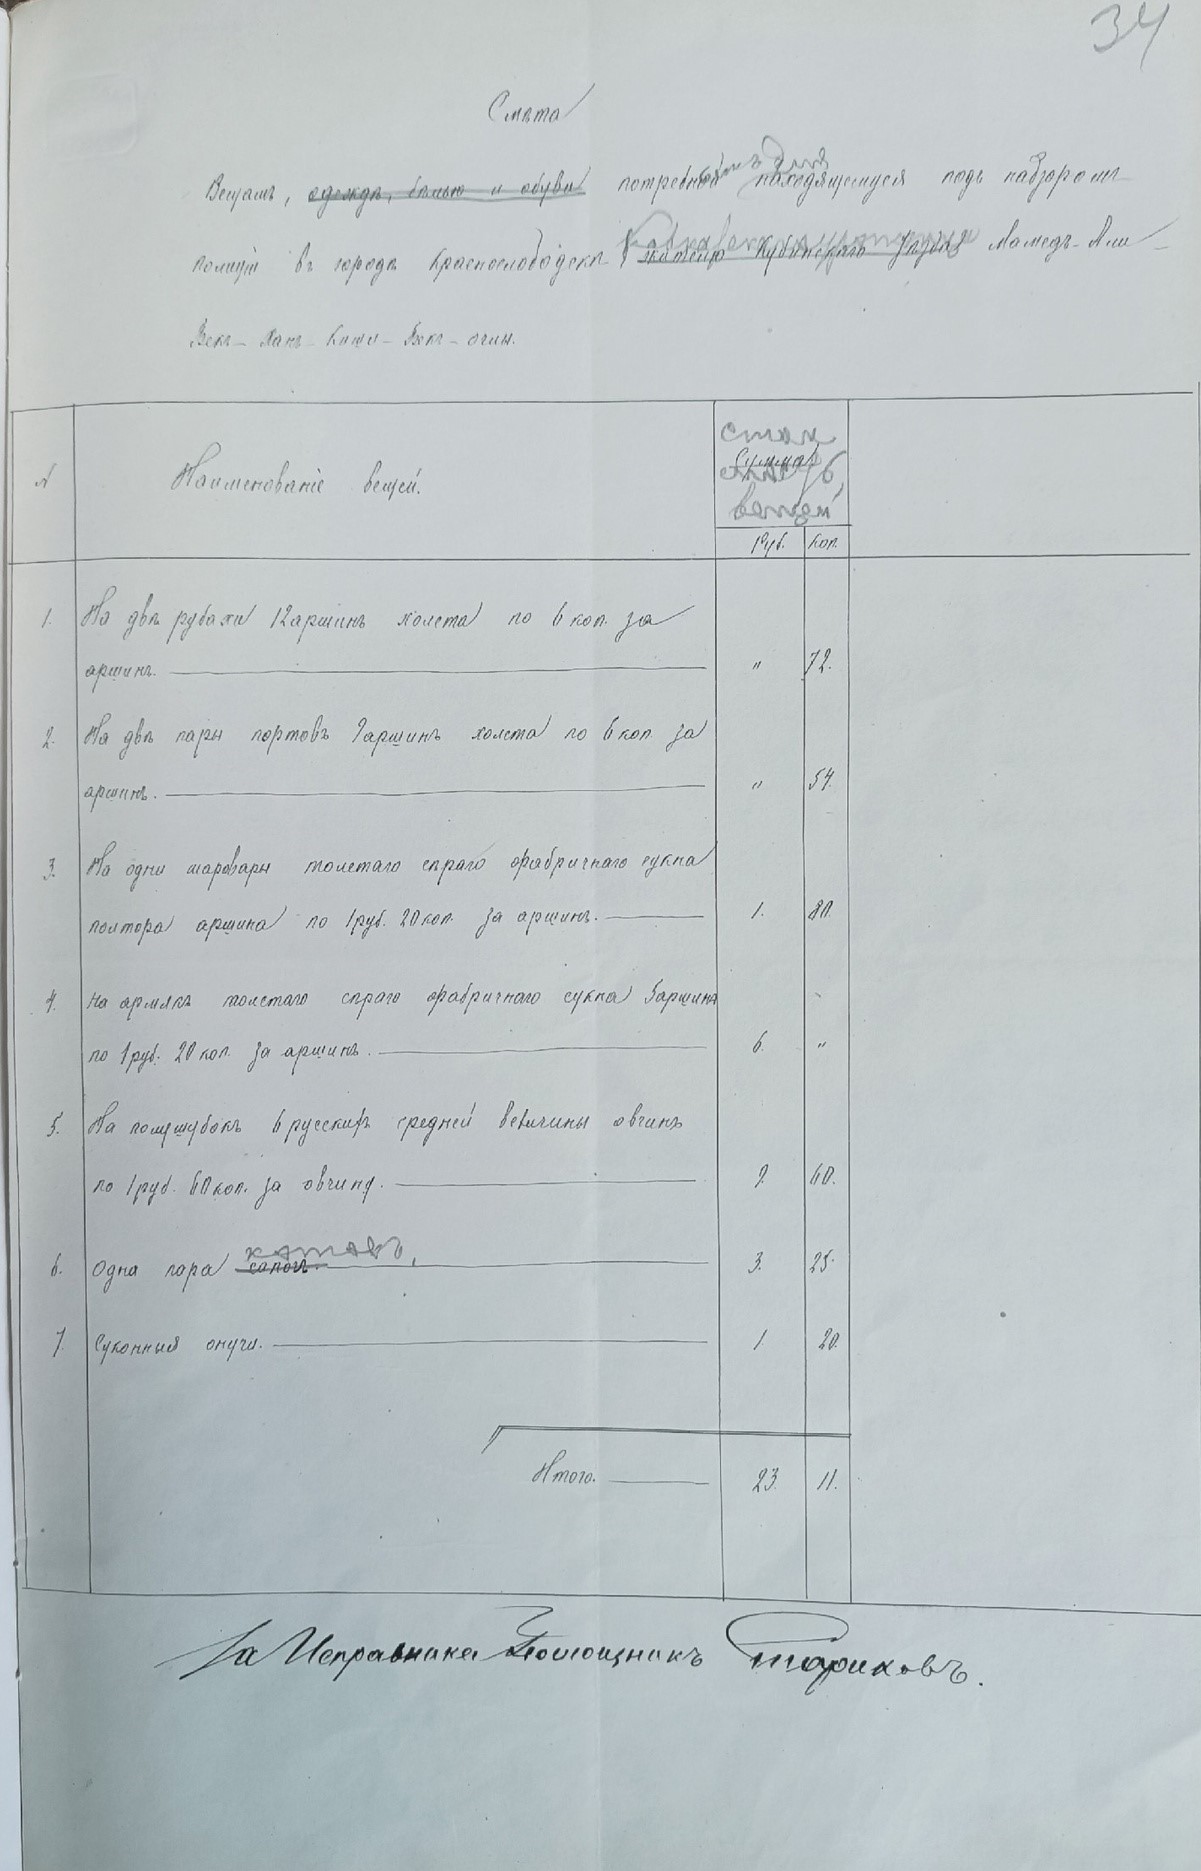 34
Смѣта
Вещамъ, одеждѣ, бѣлью и обуви потребной находящемуся подъ надзоромъ
полиціи въ городѣ Краснослободскѣ жителю Кубинскаго уѣзда Мамедъ-Али-
Бекъ-Ханъ-Киши-Бекъ-оглы.
№ Наименованіе вещей. Сумма
вещей
Руб. Коп.
1. На двѣ рубахи 12 аршинъ холста по 6 коп. за
аршинъ. " 72.
2. На двѣ пары портовъ 9 аршинъ холста по 6 коп. за
аршинъ. " 54.
3. На одни шаровары толстаго сѣраго фабричнаго сукна
полтора аршина по 1 руб. 20 коп. за аршинъ. 1. 80.
4. На армякъ толстаго сѣраго фабричнаго сукна 5 аршинъ
по 1 руб. 20 коп. за аршинъ. 6. "
5. На полушубокъ 6 русскихъ средней величины овчинъ
по 1 руб. 60 коп. за овчину. 9. 60.
котовъ,
6. Одна пара сапогъ. 3. 25.
7. Суконныя онучи. 1. 20.
Итого. 23. 11.
За Исправника Помощникъ Стариковъ.